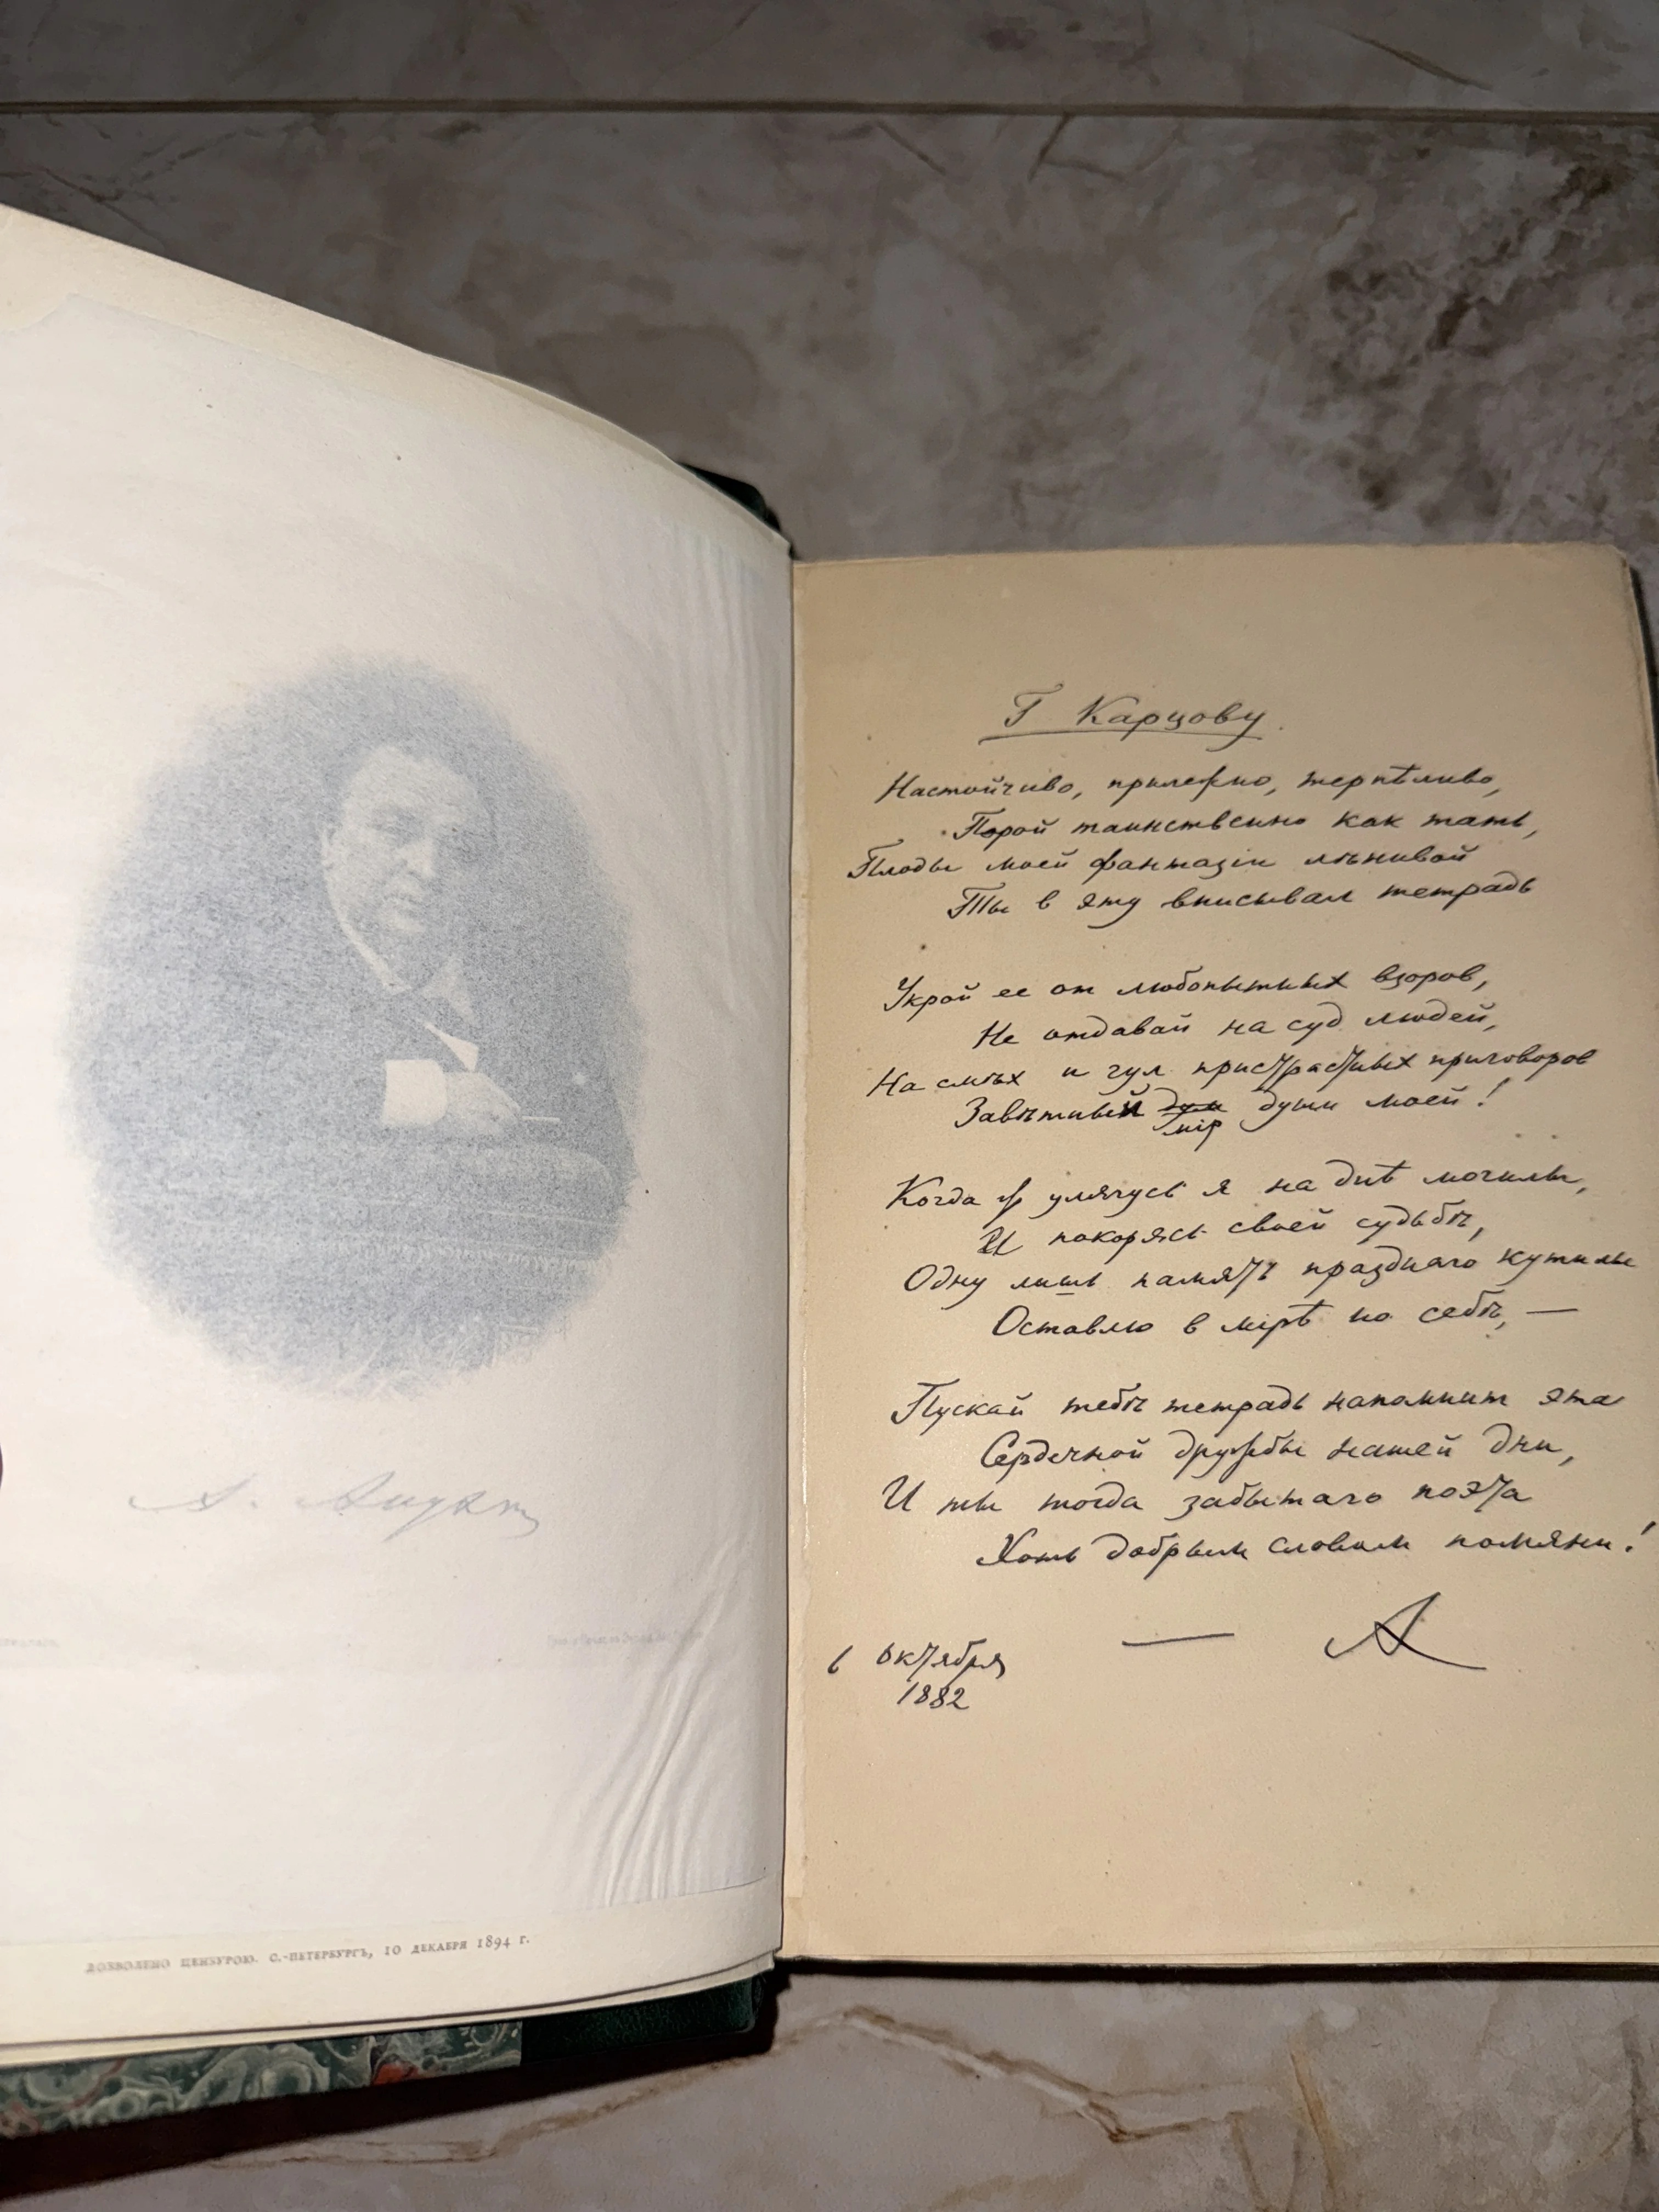 А. Апухтин
ДОЗВОЛЕНО ЦЕНЗУРОЮ. С.-ПЕТЕРБУРГЪ, 10 ДЕКАБРЯ 1894 Г.
Г Карцову.
Настойчиво, прилежно, терпѣливо,
Порой таинственно как тать,
Плоды моей фантазіи лѣнивой
Ты в эту вписывал тетрадь
Укрой ее от любопытных взоров,
Не отдавай на суд людей,
На смѣх и гул пристрастных приговоров
Завѣтный души моей!
мір
Когда ж улягусь я на днѣ могилы,
И покорясь своей судьбѣ,
Одну лишь память празднаго кутилы
Оставлю в мірѣ по себѣ, —
Пускай тебѣ тетрадь напомнит эта
Сердечной дружбы нашей дни,
И ты тогда забытаго поэта
Хоть добрым словом помяни!
— А
6 октября
1882